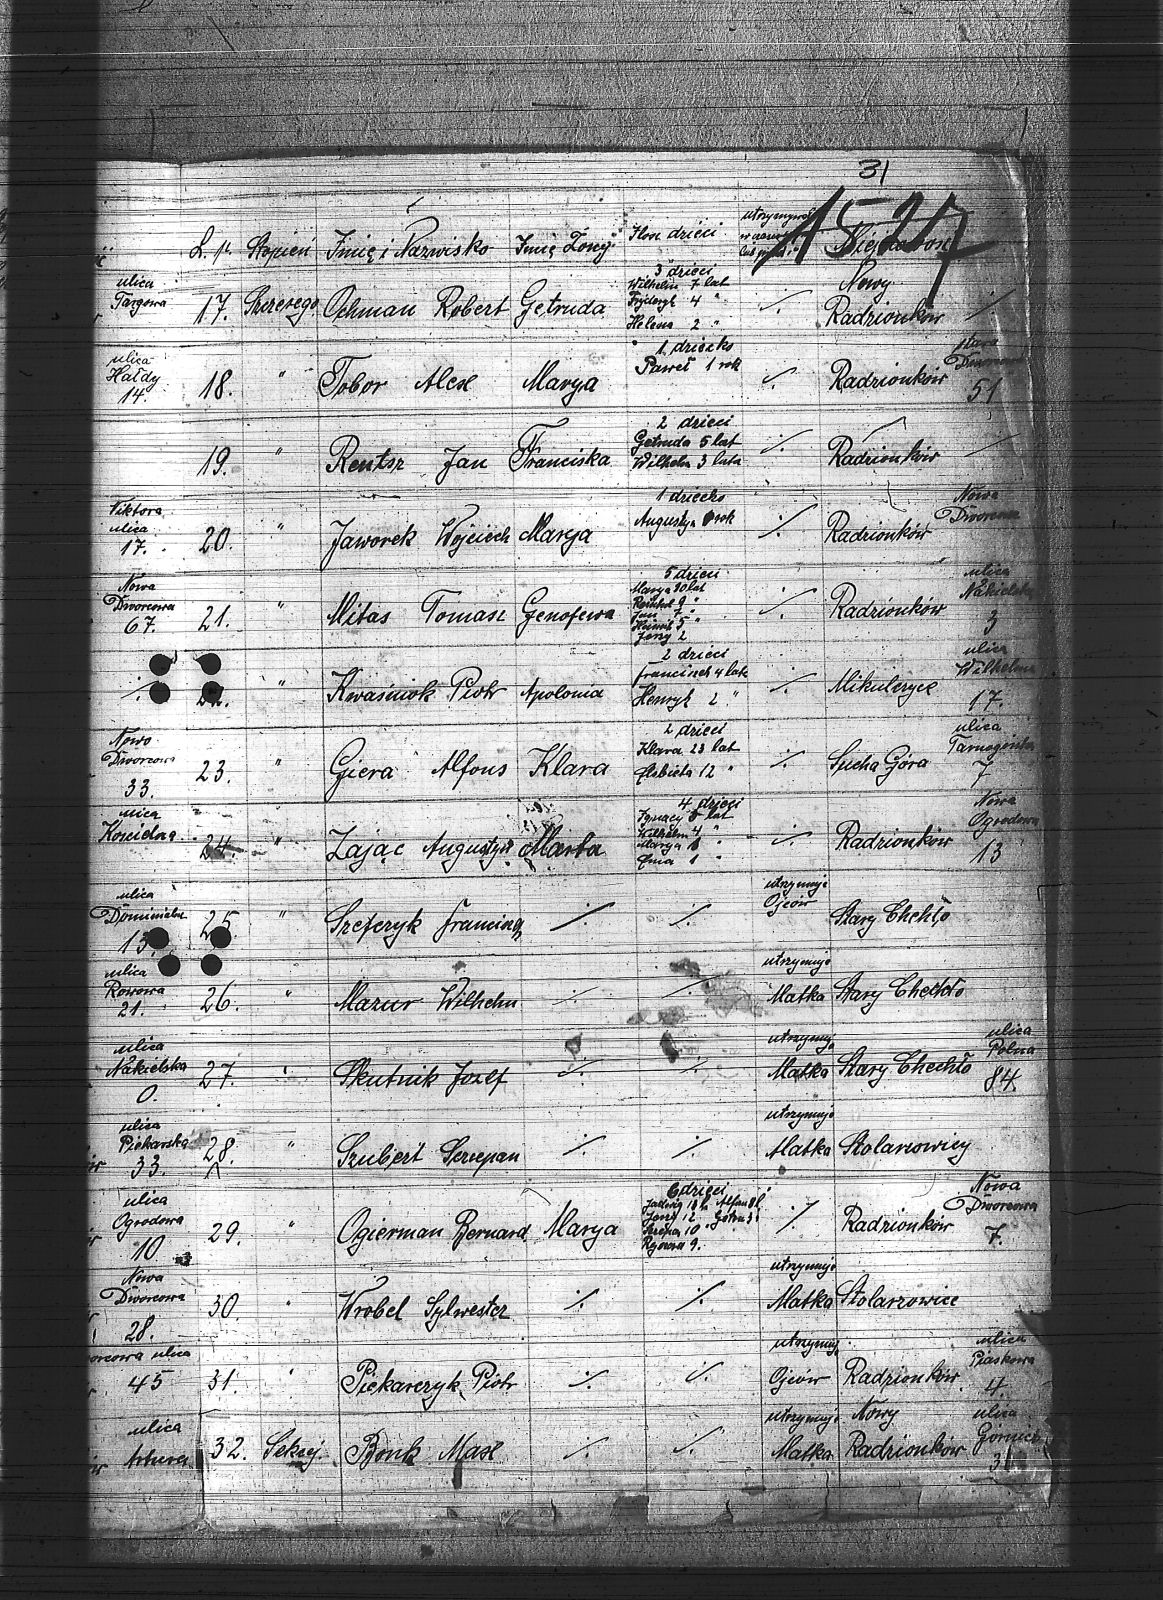 31
15 27
L. p. Stopień Imię i Nazwisko Imię Żony Ilość dzieci
ulica Targowa
17. Szereego Ochman Robert Getruda
3 dzieci
Wilhelm 7 lat
Fryderyk 4 "
Helena 2 "
·/. Nowy Radzionków /
ulica Hałdy 14.
18. " Tobor Alex Marya
1 dziecko
Paweł 1 rok
·/. Radzionków
stara Dworcowa 51
19. " Rentsz Jan Franciska
2 dzieci
Getruda 5 lat
Wilhelm 3 lata
·/. Radzionków /
Viktora ulica 17.
20. " Jaworek Wojciech Marya
1 dziecko
Augustyn rok
·/. Radzionków
Nowa Dworcowa
Nowa Dworcowa 67.
21. " Mitas Tomasz Genofewa
5 dzieci
Marya 10 lat
9 "
Jan 7 "
5 "
Jerzy 2
·/. Radzionków
ulica Nakielska 3
·/.
22. " Kwaśniok Piotr Apolonia
2 dzieci
Francisek 4 lata
Henryk 2 "
·/. Mikulczyce
ulica Wilhelma 17.
Nowo Dworcowa 33.
23. " Giera Alfons Klara
2 dzieci
Klara 23 lat
Elsbieta 12 "
·/. Sucha Góra
ulica 7
ulica Kościelna
24. " Zając Augustyn Marta
4 dzieci
Ignacy 5 lat
Wilhelm 4 "
Marya "
Ema 1 "
·/. Radzionków
Nowa Ogrodowa 13
ulica 13.
25 " Szefczyk Francisq ·/. ·/.
utrzymuje Ojców Stary Chechło
ulica Rowowa 21.
26. " Mazur Wilhelm ·/. ·/.
utrzymuje Matka Stary Chechło
ulica Nakielska 0.
27. " Skutnik Jozef ·/. ·/.
utrzymuj. Matka Stary Chechło
ulica Polna 84.
ulica Piekarska 33.
28. " Szubert Szczepan ·/. ·/.
utrzymuje Matka Stolarzowicy
ulica Ogrodowa 10
29. " Ogierman Bernard Marya
6 dzieci
Jadwig 18 l. Alfons 8 l.
Jerzy 12 "
10 "
9.
·/. Radzionków
Nowa Dworcowa 7.
Nowa Dworcowa 28.
30 " Wrobel Sylwester ·/. ·/.
utrzymuje Matka Stolarzowice
orcowa ulica 45
31. " Piekarczyk Piotr ·/. ·/.
utrzymuj. Ojców Radzionków
ulica Piaskowa 4.
ulica Artura
32. Sekcej. Bonk Max ·/. ·/.
utrzymuje Matka Nowy Radzionków
ulica Górnicz